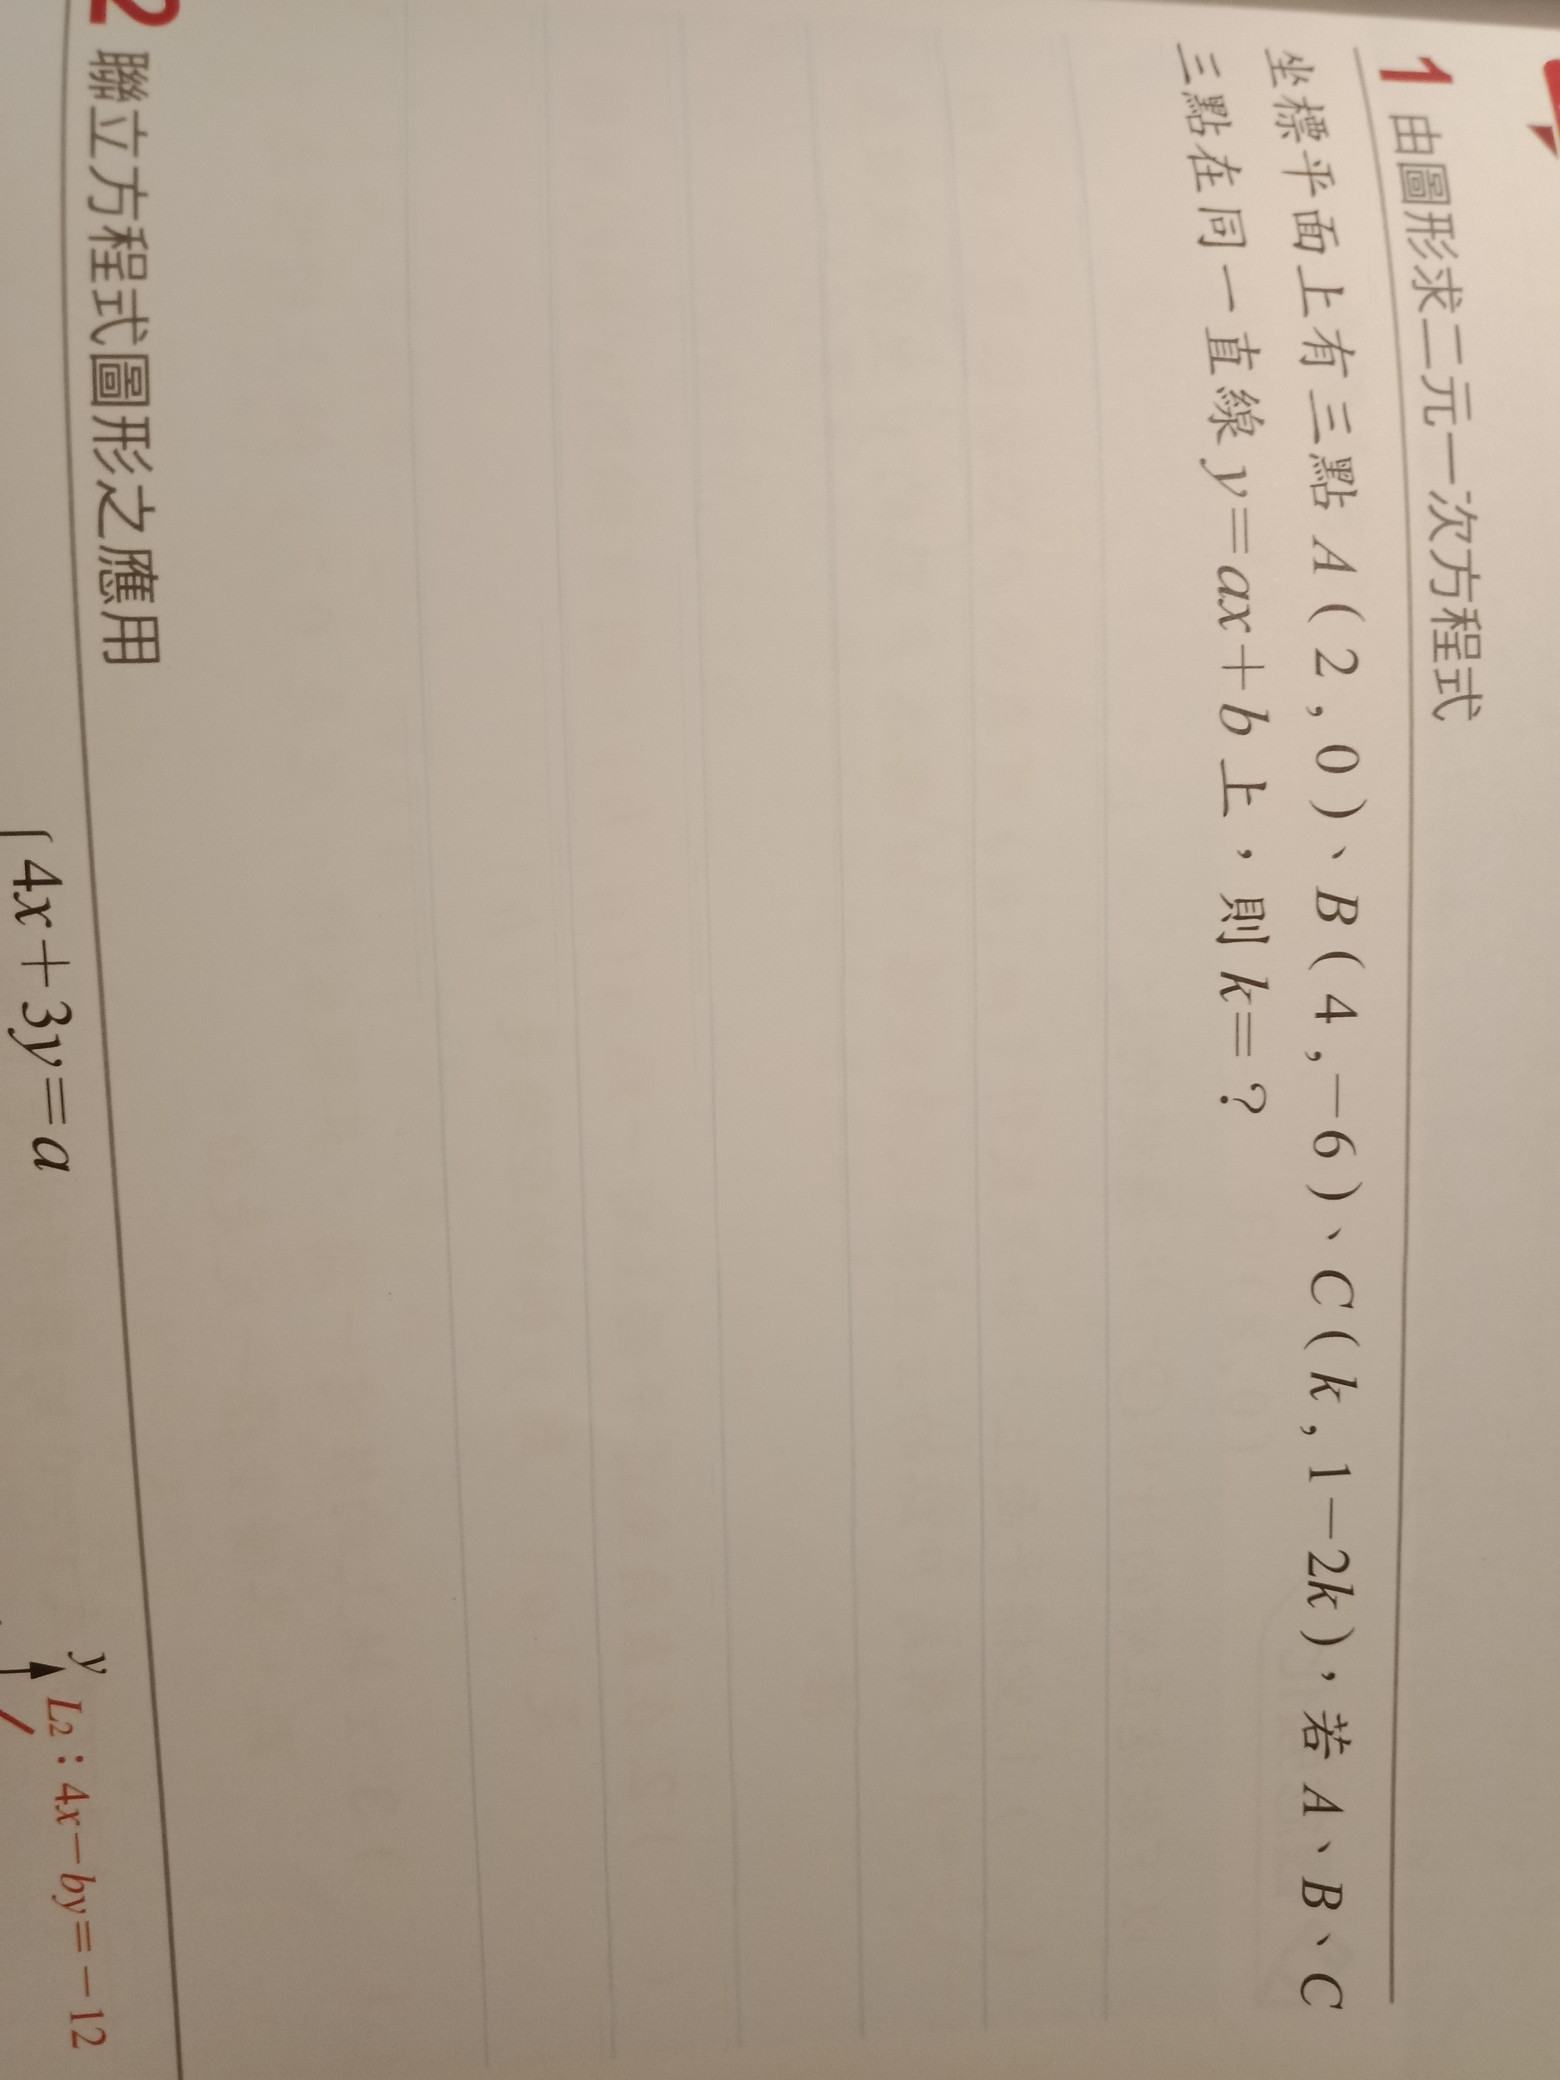 1 由圖形求二元一次方程式
坐標平面上有三點 A(2,0)、B(4,-6)、C(k,1-2k),若 A、B、C
三點在同一直線 y=ax+b 上,則 k=?
2 聯立方程式圖形之應用
4x+3y=a
y
L2:4x-by=-12